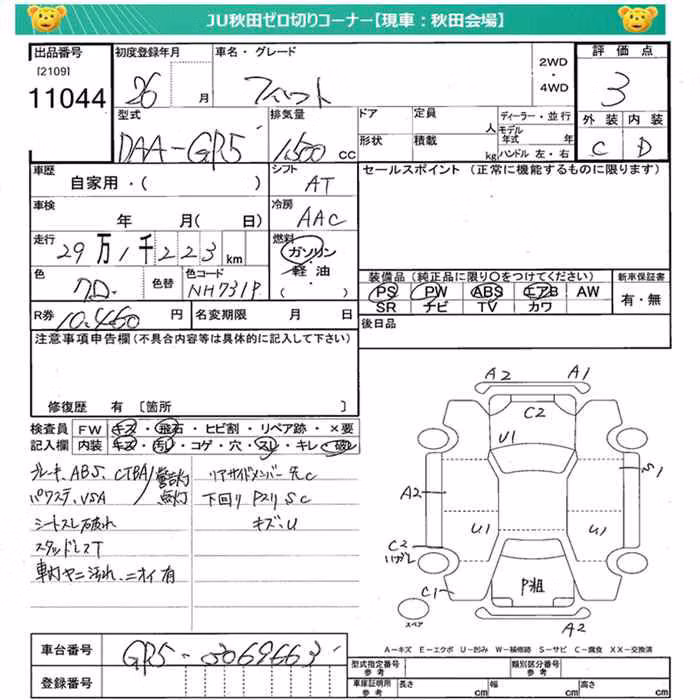 JU秋田ゼロ切りコーナー【現車：秋田会場】
出品番号 [2109] 11044
初度登録年月 26 月
車名・グレード フィット
2WD・4WD
評価点 3
外装 C 内装 D
型式 DAA-GR5
排気量 1,500 cc
ドア 定員 人
形状 積載 kg
ディーラー・並行
モデル年式 年
ハンドル 左・右
車歴 自家用・( )
シフト AT
セールスポイント (正常に機能するものに限ります)
車検 年 月( 日)
冷房 AAC
走行 29万1千223km
燃料 ガソリン・軽油・( )
色 色替 色コード NH731P
装備品 (純正品に限り〇をつけてください)
PS PW ABS エアB AW
SR ナビ TV カワ
新車保証書 有・無
R券 10,460円
名変期限 月 日
後日品
注意事項申告欄 (不具合内容等は具体的に記入して下さい)
修復歴 有 [箇所 ]
検査員記入欄
FW キズ・飛石・ヒビ割・リペア跡・×要
内装 キズ・汚レ・コゲ・穴・スレ・キレ・破レ
ブレーキ、ABS、CTBA
パワステ、VSA
警告灯点灯
シートスレ破れ
スタッドレスT
車灯ヤニ汚れ、ニオイ有
リアサイドメンバー先C
下回り Pスリ SC
キズ、U
A2 A1
C2
U1
S1
A2
U1 U1
C2
ハガレ
C1
P粗
A2
スペア
A−キズ E−エクボ U−凹み W−補修跡 S−サビ C−腐食 XX−交換済
車台番号 GR5-3069663
登録番号
型式指定番号 参考
類別区分番号 参考
車庫証明用 参考 長さ cm 幅 cm 高さ cm